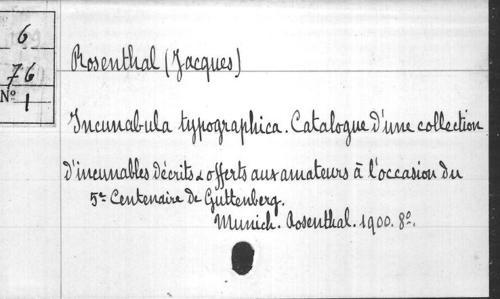 6
76
Nº 1
Rosenthal (Jacques)
Incunabula typographica. Catalogue d'une collection
d'incunables décrits & offerts aux amateurs à l'occasion du
5e Centenaire de Guttenberg.
Munich. Rosenthal. 1900. 8º.